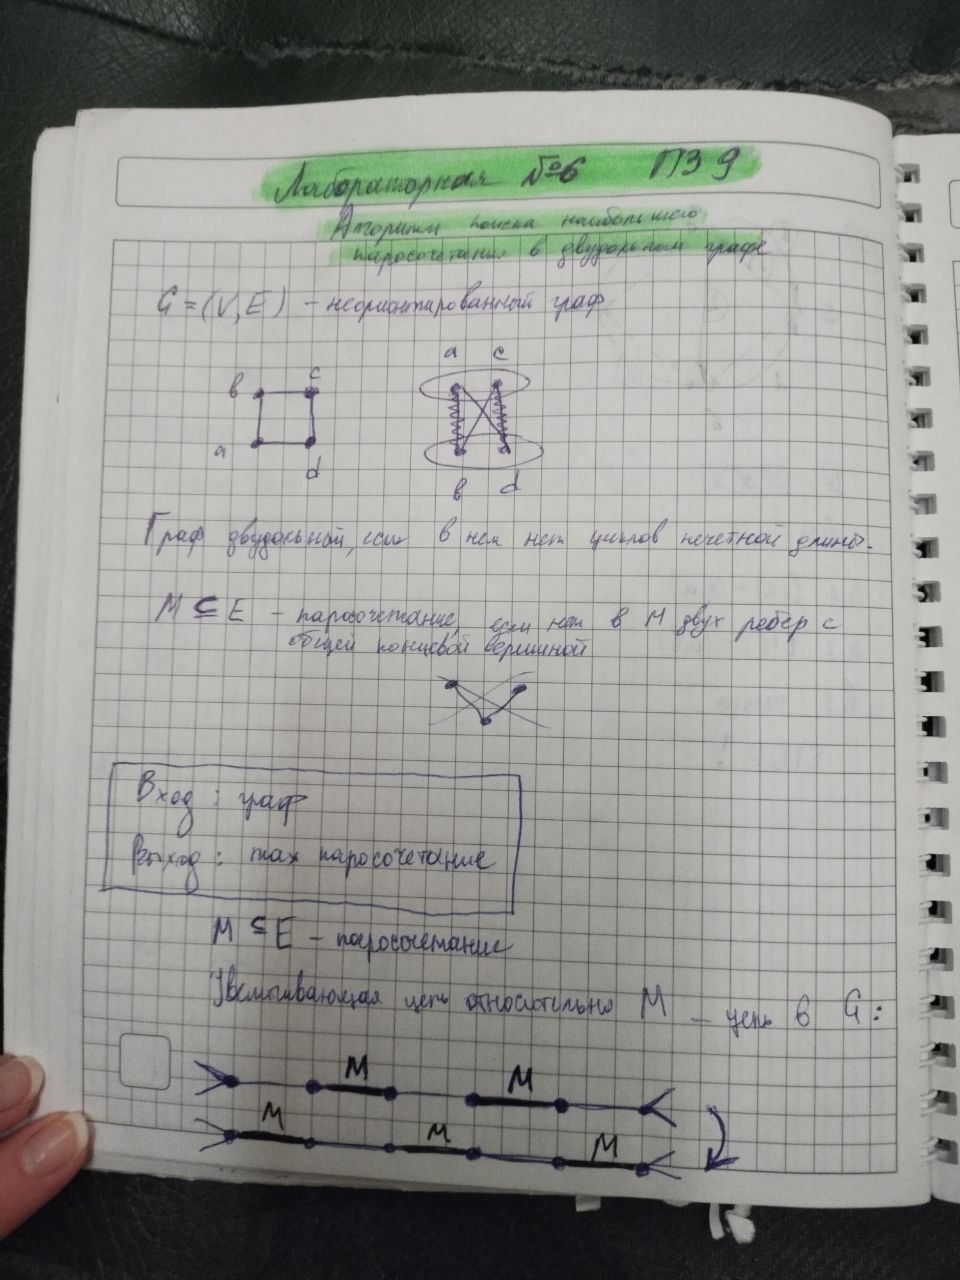 Лабораторная №6 ПЗ 9
Алгоритм поиска наибольшего
паросочетания в двудольном графе
G = (V, E) - неориентированный граф
в с
а d
а с
в d
Граф двудольный, если в нем нет циклов нечетной длины.
M ⊆ E - паросочетание, если нет в M двух ребер с
общей концевой вершиной
Вход : граф
Выход : max паросочетание
M ⊆ E - паросочетание
Увеличивающая цепь относительно M - цепь в G :
M M
M M M